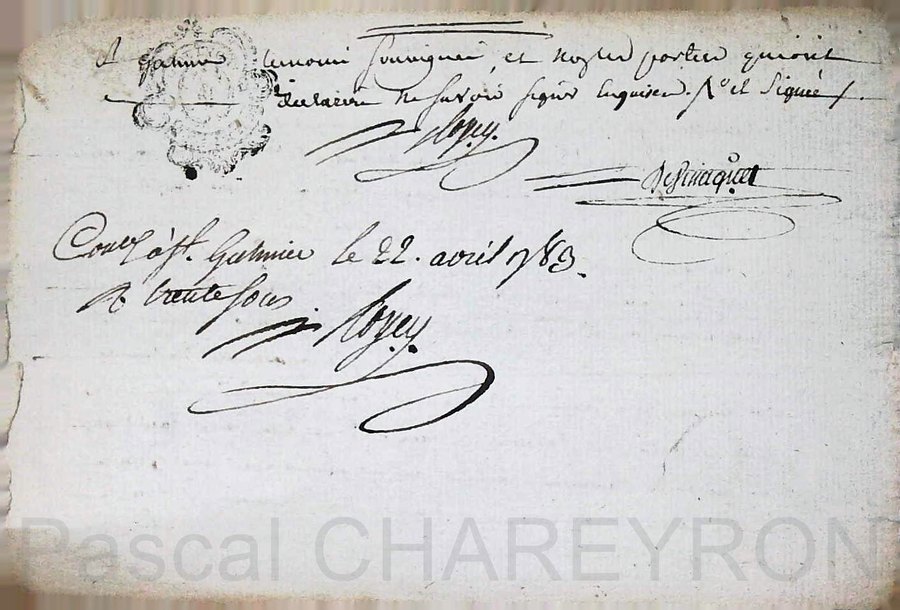 A Galmier temoins soussignés, et nosd. parties qui ont
declaré ne savoir signer enquises. / et signé /.
Royey.
Desimaque
Con.lé à St. Galmier le 22. avril 1783.
R. trente sous
Royey.
Pascal CHAREYRON